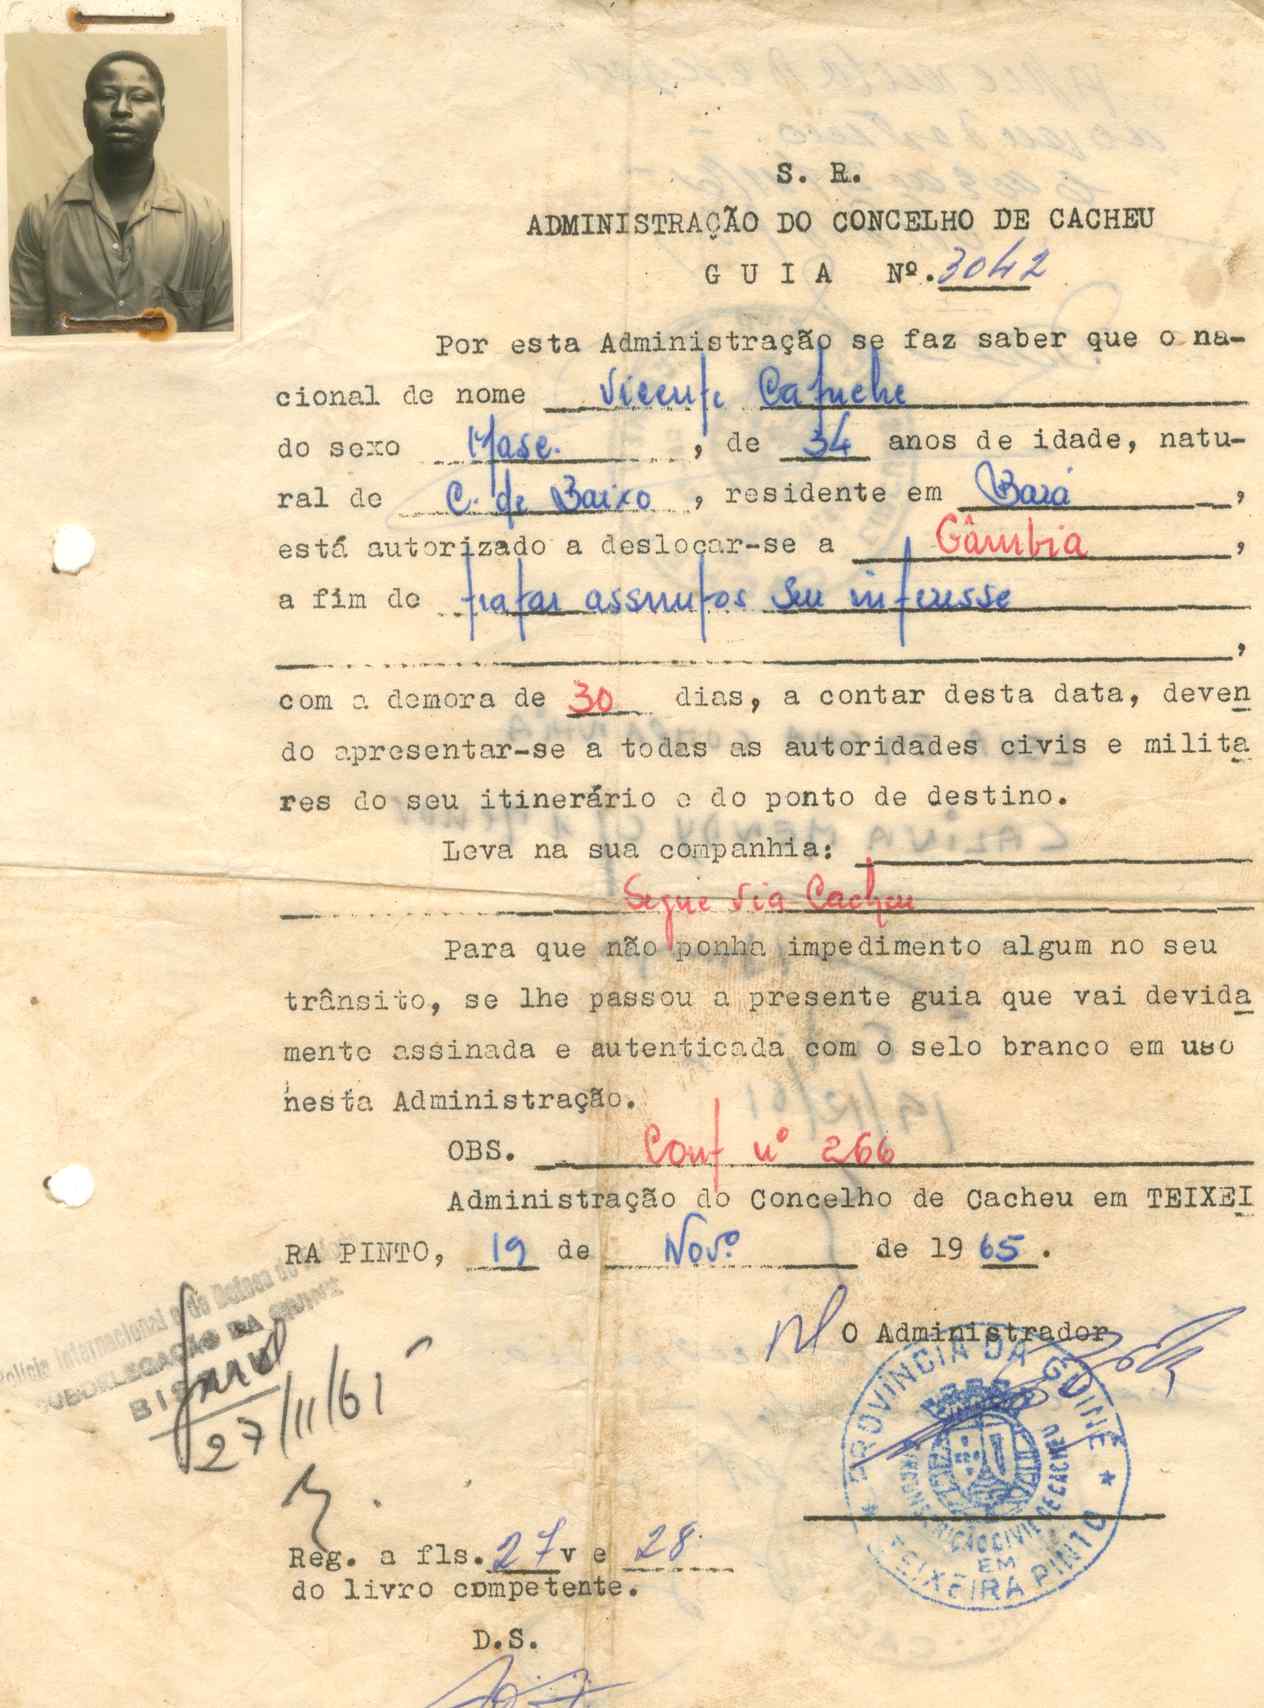 S. R.
ADMINISTRAÇÃO DO CONCELHO DE CACHEU
G U I A Nº. 3042
Por esta Administração se faz saber que o na-
cional de nome Vicente Cafuche
do sexo Masc. , de 34 anos de idade, natu-
ral de C. de Baixo , residente em Bará ,
está autorizado a deslocar-se a Gâmbia ,
a fim de tratar assuntos seu interesse
,
com a demora de 30 dias, a contar desta data, deven
do apresentar-se a todas as autoridades civis e milita
res do seu itinerário e do ponto de destino.
Leva na sua companhia:
Segue via Cacheu
Para que não ponha impedimento algum no seu
trânsito, se lhe passou a presente guia que vai devida
mente assinada e autenticada com o selo branco em uso
nesta Administração.
OBS. Conf nº 266
Administração do Concelho de Cacheu em TEIXEI
RA PINTO, 19 de Novº. de 19 65 .
Polícia Internacional e de Defesa do
SUBDELEGAÇÃO DA GUINÉ
27/11/61
O Administrador
PROVÍNCIA DA GUINÉ
CIVIL DE CACHEU
EM
TEIXEIRA PINTO
Reg. a fls. 27 v e 28
do livro competente.
D.S.